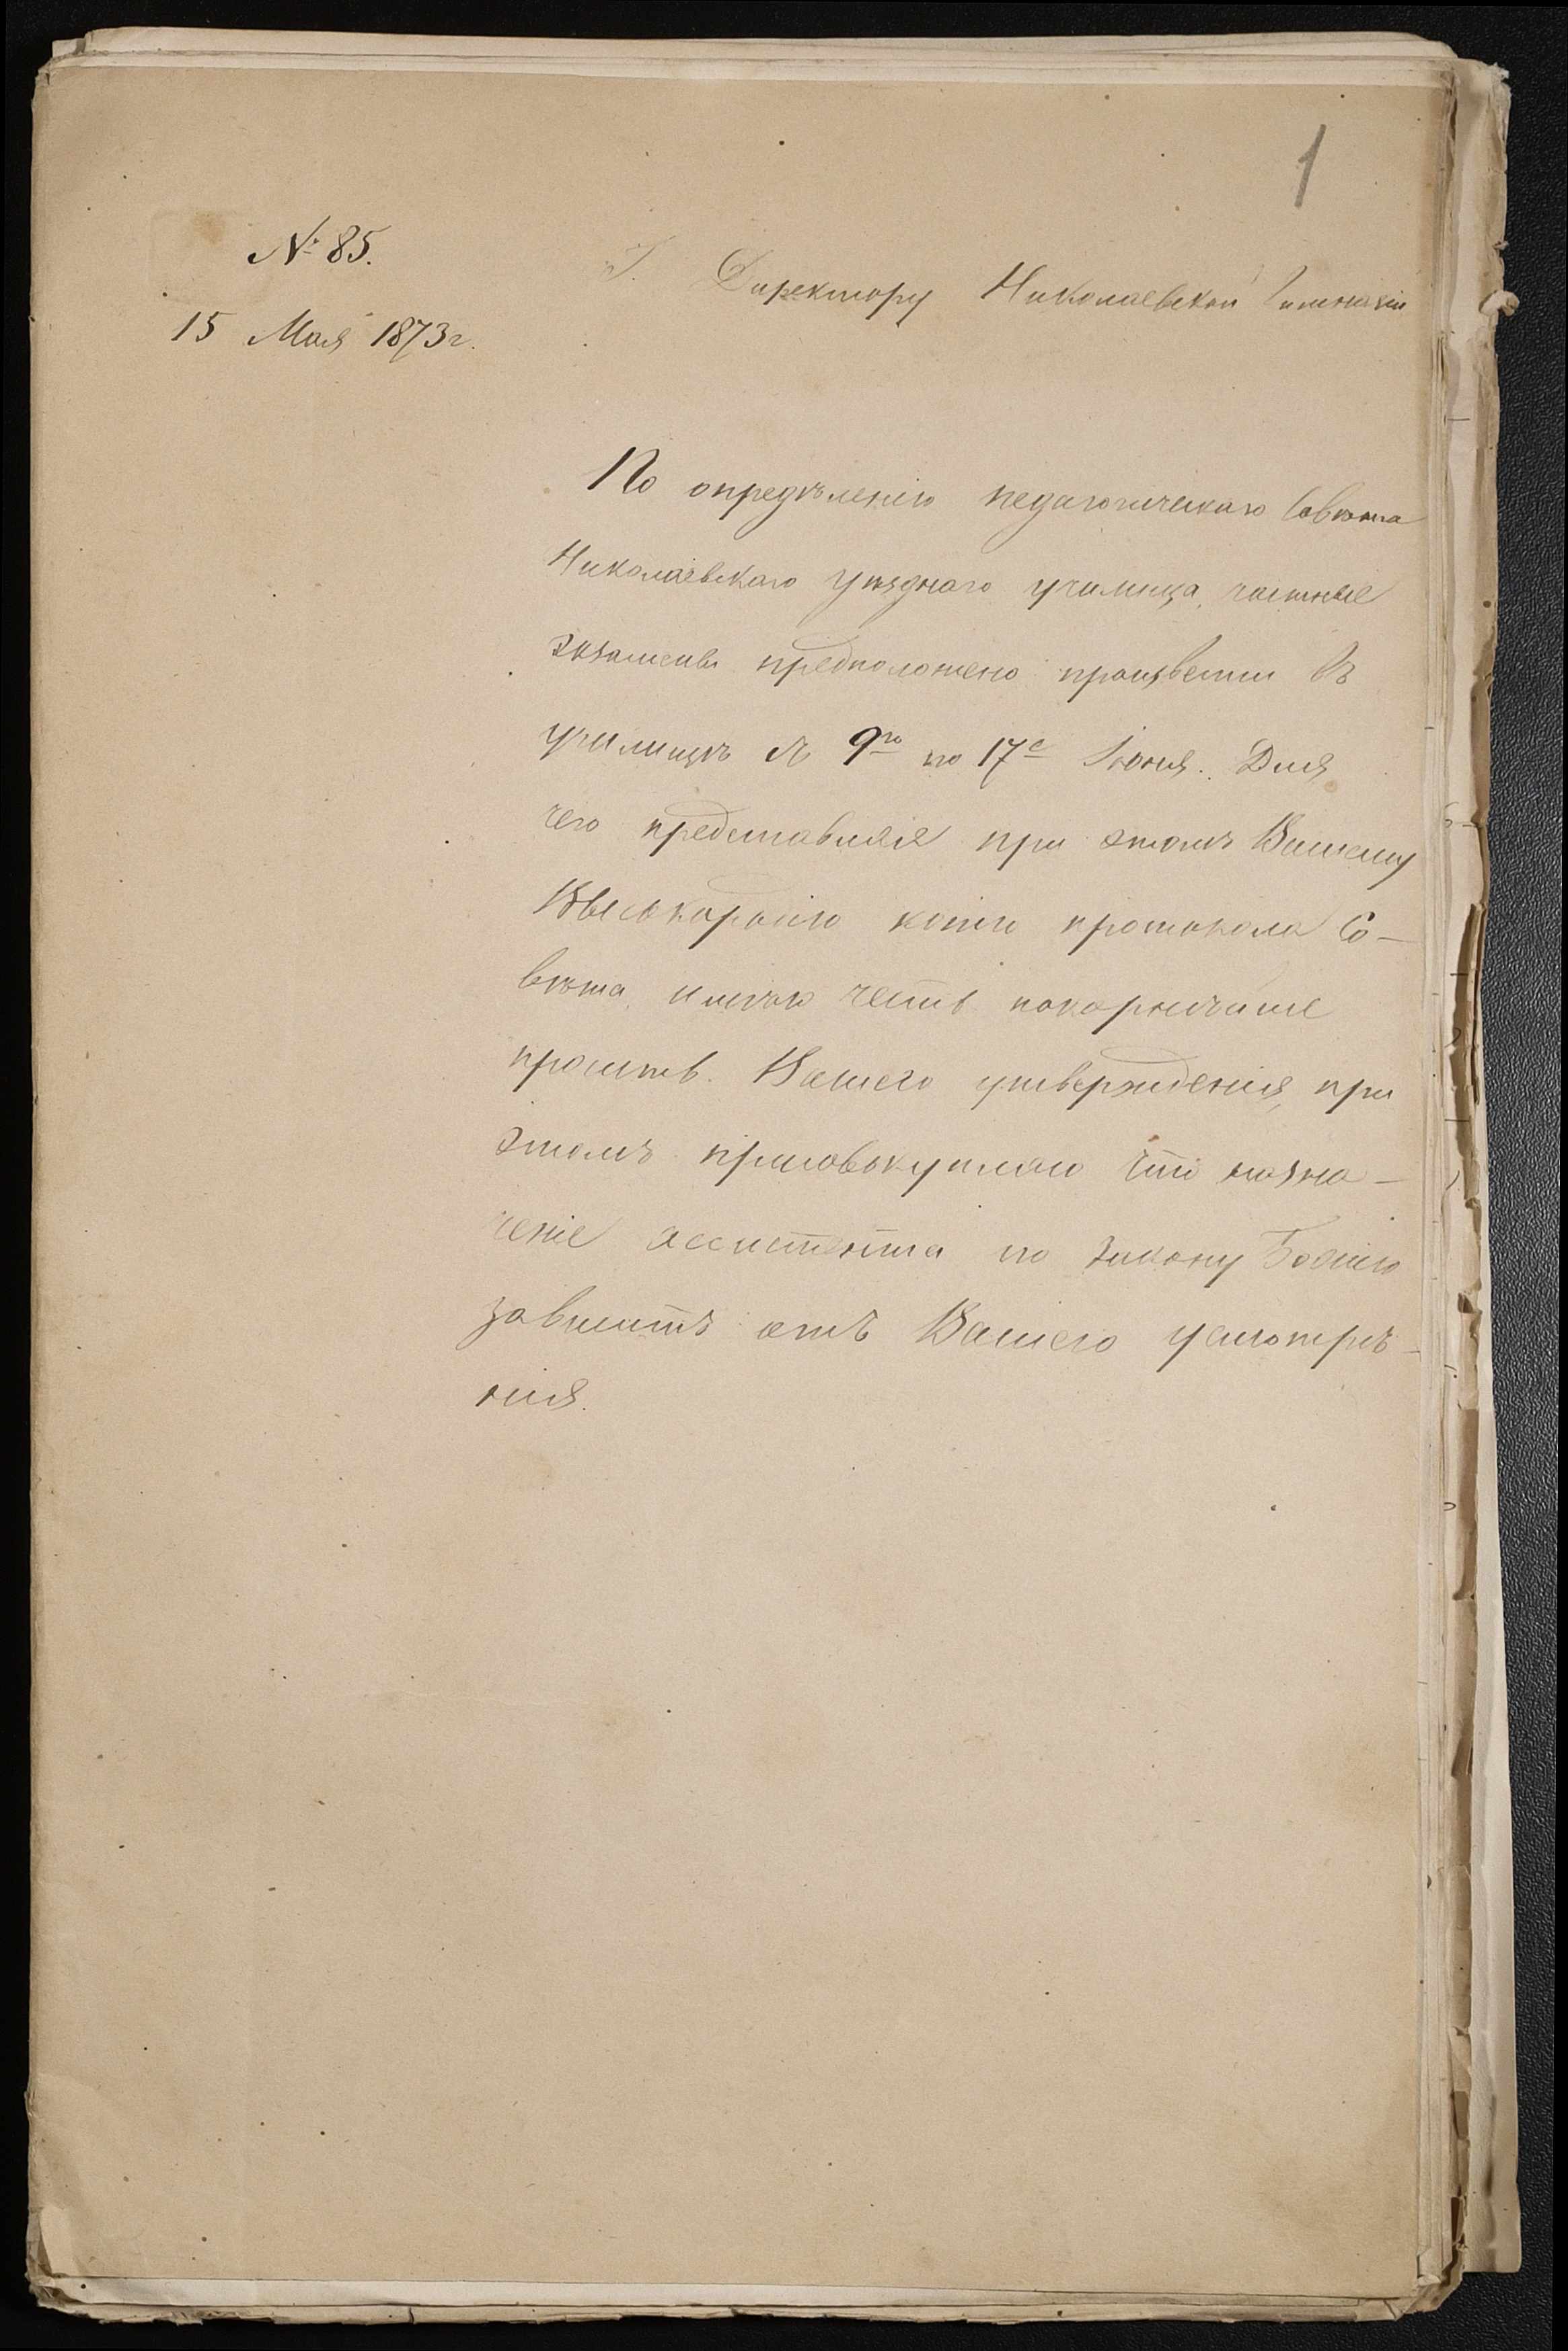 1
№ 85.
15 Мая 1873 г.
Г. Директору Николаевской Гимназіи
По опредѣленію педагогическаго Совѣта
Николаевскаго уѣзднаго училища, частные
экзамены предположено произвести въ
училищѣ съ 9го по 17е Іюня. Для
чего представляя при этомъ Вашему
Высокородію копію протокола Со-
вѣта имѣю честь покорнѣйше
просить Вашего утвержденія, при
этомъ присовокупляю что назна-
ченіе ассистента по Закону Божію
зависитъ отъ Вашего усмотрѣ-
нія.